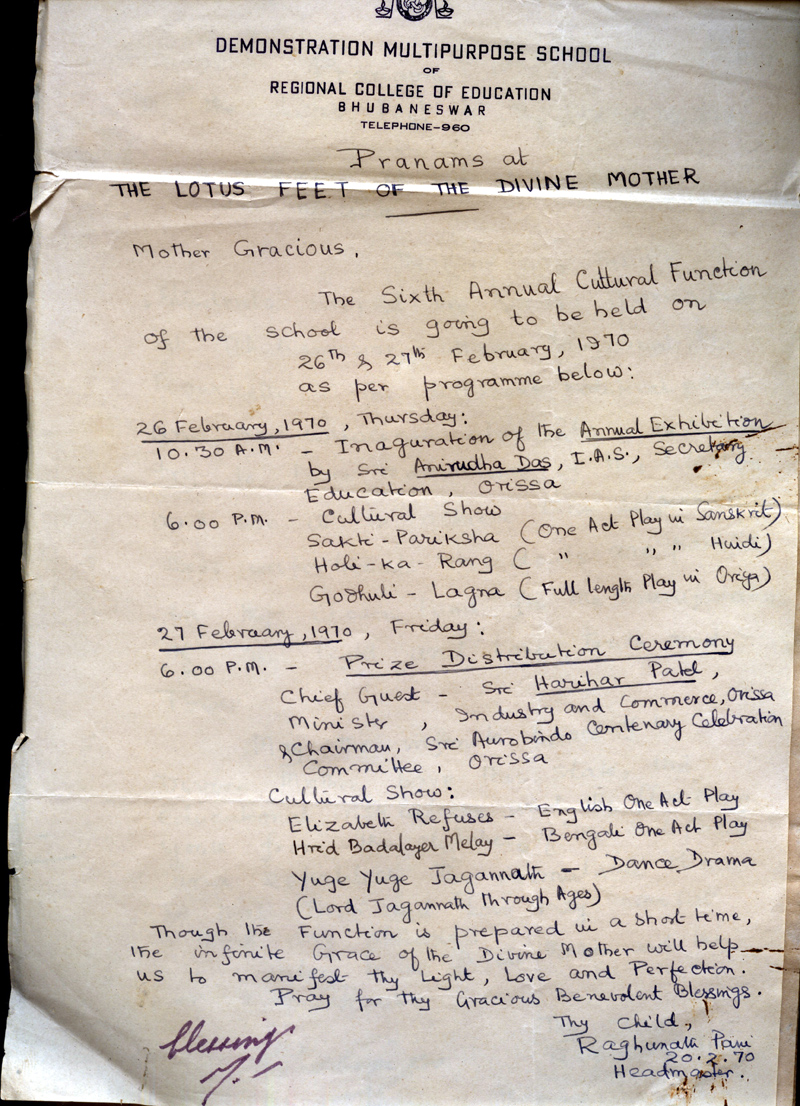 DEMONSTRATION MULTIPURPOSE SCHOOL
OF
REGIONAL COLLEGE OF EDUCATION
BHUBANESWAR
TELEPHONE-960
Pranams at
THE LOTUS FEET OF THE DIVINE MOTHER
Mother Gracious,
The Sixth Annual Cultural Function
of the school is going to be held on
26th & 27th February, 1970
as per programme below:
26 February, 1970, Thursday:
10.30 A.M. - Inaguration of the Annual Exhibition
by Sri Anirudha Das, I.A.S., Secretary
Education, Orissa
6.00 P.M. - Cultural Show
Sakti-Pariksha (One Act Play in Sanskrit)
Holi-ka-Rang ( " " " Hindi)
Godhuli-Lagna (Full length Play in Oriya)
27 February, 1970, Friday:
6.00 P.M. - Prize Distribution Ceremony
Chief Guest - Sri Harihar Patel,
Minister, Industry and Commerce, Orissa
& Chairman, Sri Aurobindo Centenary Celebration
Committee, Orissa
Cultural Show:
Elizabeth Refuses - English One Act Play
Hrid Badalayer Melay - Bengali One Act Play
Yuge Yuge Jagannath - Dance Drama
(Lord Jagannath through Ages)
Though the Function is prepared in a short time,
the infinite Grace of the Divine Mother will help
us to manifest thy Light, Love and Perfection.
Pray for thy Gracious Benevolent Blessings.
Thy child,
Raghunath Pani
20.2.70
Headmaster.
blessings